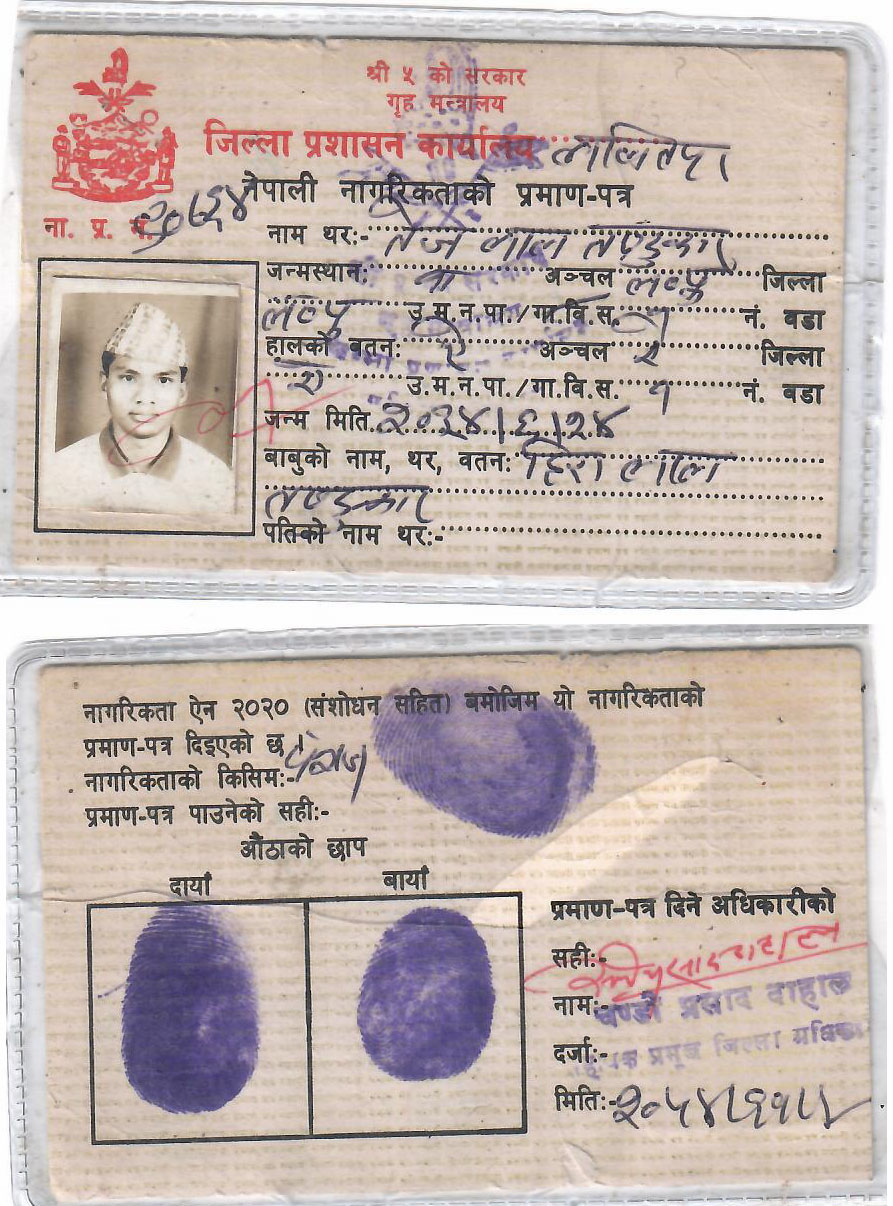 श्री ५ को सरकार
गृह मन्त्रालय
जिल्ला प्रशासन कार्यालय
नेपाली नागरिकताको प्रमाण-पत्र
ना. प्र. नं.
नाम थर:- तेज लाल तण्डुकार
जन्मस्थान: अञ्चल ल॰पु जिल्ला
ल॰पु उ.म.न.पा./गा.वि.स. नं. वडा
हालको वतन: ऐ अञ्चल ऐ जिल्ला
ऐ उ.म.न.पा./गा.वि.स. १ नं. वडा
जन्म मिति. २०३४।६।२४
बाबुको नाम, थर, वतन: हिरा लाल
तण्डुकार
पतिको नाम थर:-
नागरिकता ऐन २०२० (संशोधन सहित) बमोजिम यो नागरिकताको
प्रमाण-पत्र दिइएको छ ।
नागरिकताको किसिम:- वंशज
प्रमाण-पत्र पाउनेको सही:-
औंठाको छाप
दायाँ बायाँ
प्रमाण-पत्र दिने अधिकारीको
सही:-
नाम:- चण्डी प्रसाद दाहाल
दर्जा:- प्रमुख जिल्ला अधिकारी
मिति:-